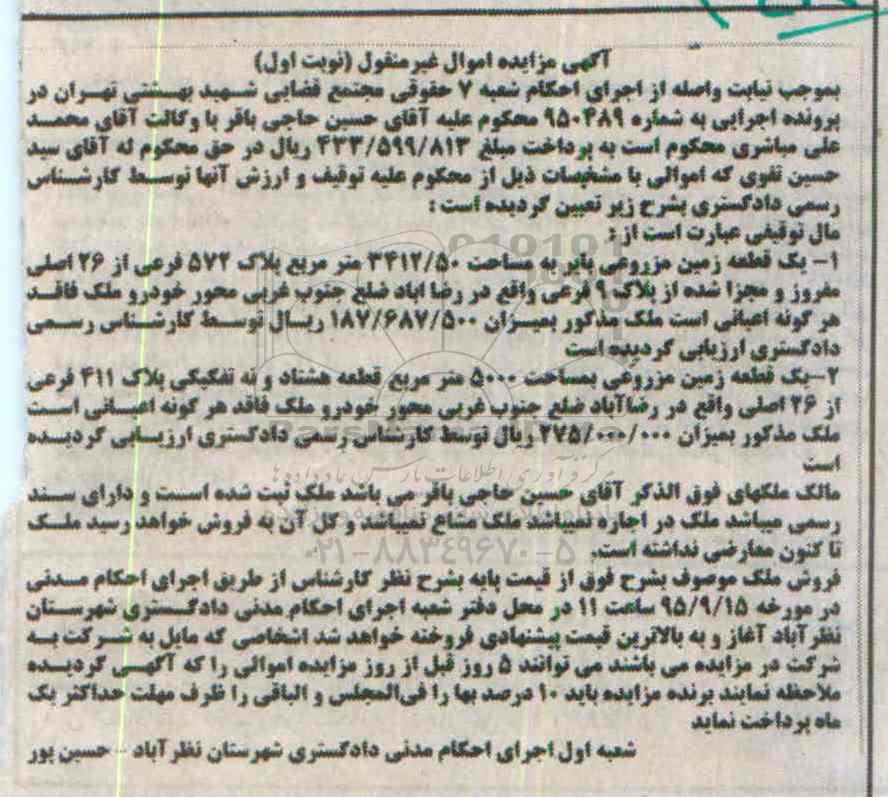 آگهی مزایده اموال غیرمنقول (نوبت اول)
بموجب نیابت واصله از اجرای احکام شعبه ۷ حقوقی مجتمع قضایی شهید بهشتی تهران در
پرونده اجرایی به شماره ۹۵۰۴۸۹ محکوم علیه آقای حسین حاجی باقر با وکالت آقای محمد
علی مباشری محکوم است به پرداخت مبلغ ۴۳۳/۵۹۹/۸۱۳ ریال در حق محکوم له آقای سید
حسین تقوی که اموالی با مشخصات ذیل از محکوم علیه توقیف و ارزش آنها توسط کارشناس
رسمی دادگستری بشرح زیر تعیین گردیده است :
مال توقیفی عبارت است از :
۱- یک قطعه زمین مزروعی بایر به مساحت ۳۴۱۲/۵۰ متر مربع پلاک ۵۷۲ فرعی از ۲۶ اصلی
مفروز و مجزا شده از پلاک ۹ فرعی واقع در رضا اباد ضلع جنوب غربی محور خودرو ملک فاقد
هر گونه اعیانی است ملک مذکور بمیزان ۱۸۷/۶۸۷/۵۰۰ ریال توسط کارشناس رسمی
دادگستری ارزیابی گردیده است
۲-یک قطعه زمین مزروعی بمساحت ۵۰۰۰ متر مربع قطعه هشتاد و نه تفکیکی پلاک ۴۱۱ فرعی
از ۲۶ اصلی واقع در رضاآباد ضلع جنوب غربی محور خودرو ملک فاقد هر گونه اعیانی است
ملک مذکور بمیزان ۲۷۵/۰۰۰/۰۰۰ ریال توسط کارشناس رسمی دادگستری ارزیابی گردیده
است
مالک ملکهای فوق الذکر آقای حسین حاجی باقر می باشد ملک ثبت شده است و دارای سند
رسمی میباشد ملک در اجاره نمیباشد ملک مشاع نمیباشد و کل آن به فروش خواهد رسید ملک
تاکنون معارضی نداشته است.
۰۲۱-۸۸۳۴۹۶۷۰-۵
فروش ملک موصوف بشرح فوق از قیمت پایه بشرح نظر کارشناس از طریق اجرای احکام مدنی
در مورخه ۹۵/۹/۱۵ ساعت ۱۱ در محل دفتر شعبه اجرای احکام مدنی دادگستری شهرستان
نظرآباد آغاز و به بالاترین قیمت پیشنهادی فروخته خواهد شد اشخاصی که مایل به شرکت به
شرکت در مزایده می باشند می توانند ۵ روز قبل از روز مزایده اموالی را که آگهی گردیده
ملاحظه نمایند برنده مزایده باید ۱۰ درصد بها را فی‌المجلس و الباقی را ظرف مهلت حداکثر یک
ماه پرداخت نماید
شعبه اول اجرای احکام مدنی دادگستری شهرستان نظرآباد - حسین پور